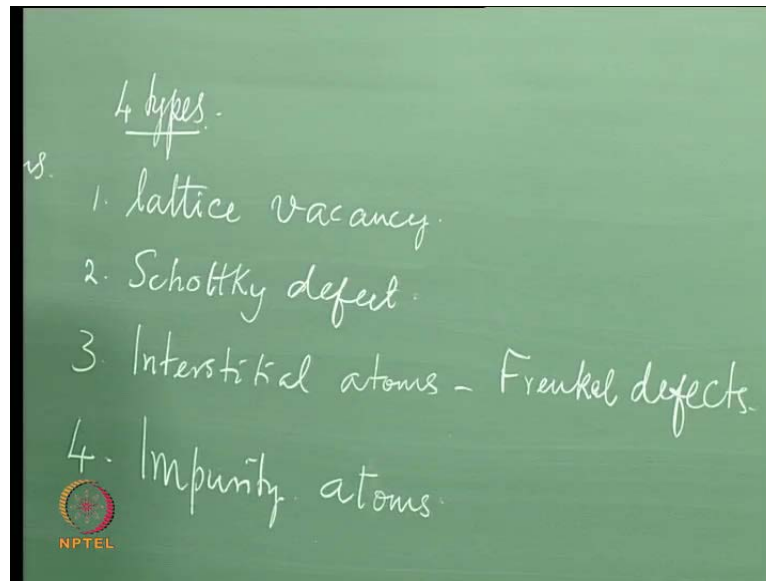 4 types.
1. lattice vacancy.
2. Schottky defect.
3. Interstitial atoms - Frenkel defects.
4. Impurity atoms.
NPTEL